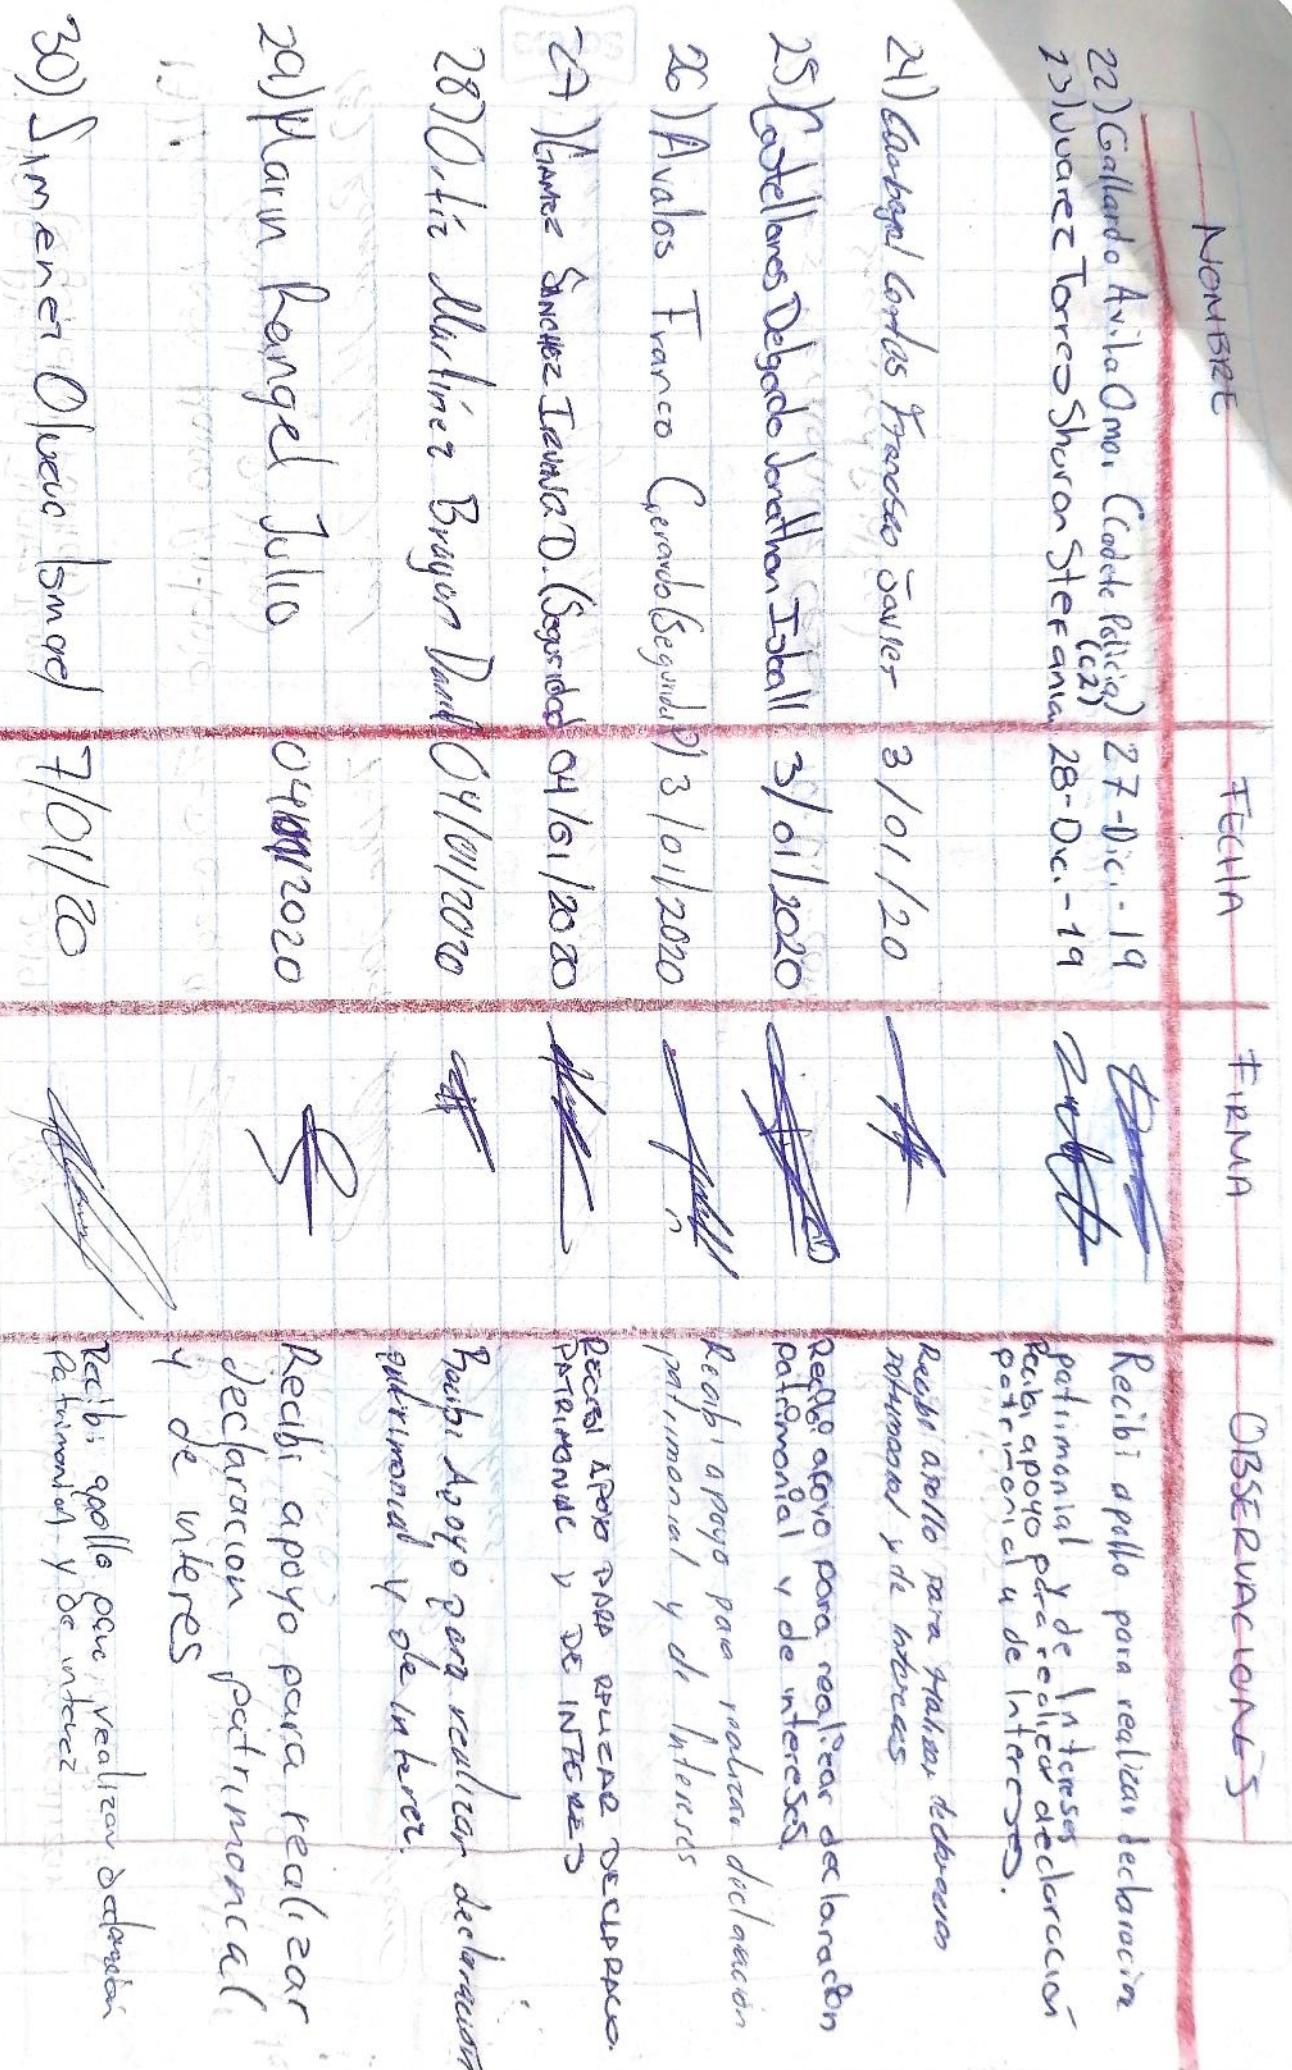 NOMBRE FECHA FIRMA OBSERVACIONES
22) Gallardo Avila Omar (Cadete Policia) 27-Dic.-19 Recibí apollo para realizar declaración
(C2) patrimonial y de Intereses
23) Juarez Torres Sharon Stefania 28-Dic.-19 Recibi apoyo para realizar declaración
patrimonial y de Intereses.
24) Carbajal Cortas Francisco Javier 3/01/20 Recibi apollo para realizar declaracion
patrimonial y de intereses
25) Castellanos Delgado Jonathan Isball 3/01/2020 Recibí apoyo para realizar declaración
patrimonial y de intereses.
26) Avalos Franco Gerardo (Segundad) 3/01/2020 Recibi apoyo para realizar declaración
patrimonial y de Intereses
27) GAMEZ SANCHEZ D. (Seguridad 04/01/2020 RECIBI APOYO PARA REALIZAR DECLARACIO.
PATRIMONIAL Y DE INTERES
28) Ortiz Martínez Brayan David 04/01/2020 Recibi Apoyo para realizar declaración
patrimonial y de interez.
29) Marin Rangel Julio 04/01/2020 Recibi apoyo para realizar
declaracion patrimonial
y de interes
30) Jimenez Olvera Ismael 7/01/20 Recibi apollo para realizar declaración
Patrimonial y de interez